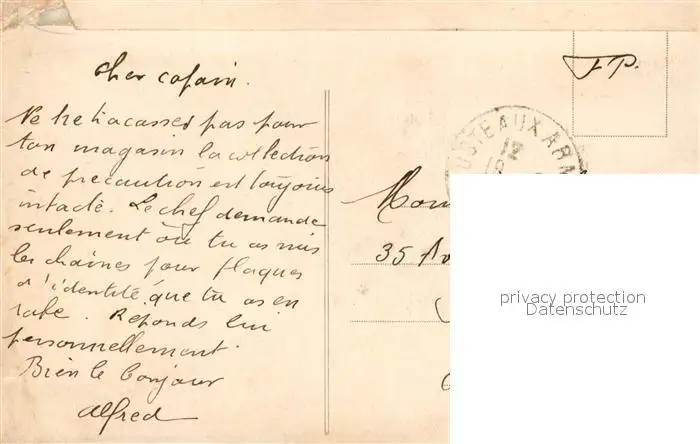 Cher copain.
Ne te tracasses pas pour
ton magasin la collection
de precaution est toujours
intacte. Le chef demande
seulement où tu as mis
les chaines pour plaques
d'identité que tu as en
rabe. Reponds lui
personnellement.
Bien le bonjour
Alfred
F.P.
12
35 Av
privacy protection
Datenschutz